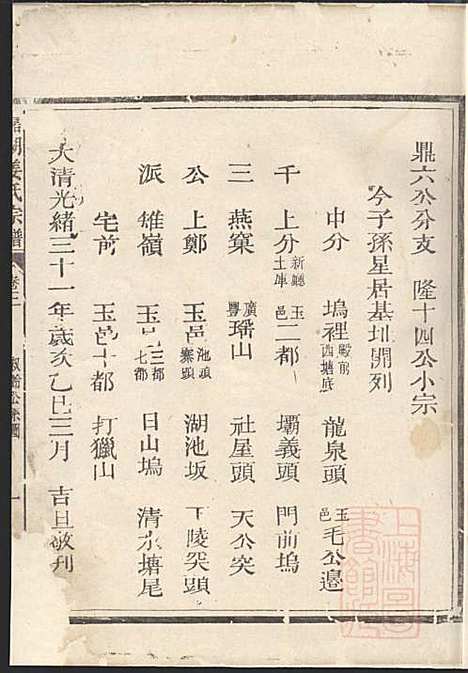 鼎六公分支 隆十四公小宗
今子孫星居基址開列
中分 塢裡 殿前 西塘底 龍泉頭 玉邑 毛公邊
千 上分 新廳 土庫 玉邑 二都 壩義頭 門前塢
三 燕窠 廣豐 瑤山 社屋頭 天公突
公 上鄭 玉邑 池頭 寨頭 湖池坂 下陵突頭
派 雉嶺 玉邑 三都 七都 日山塢 清水塘尾
宅前 玉邑 十都 打獵山
大清光緒三十一年歲次乙巳三月 吉旦敬刊
姜氏宗譜 卷二 一
上海圖書館藏